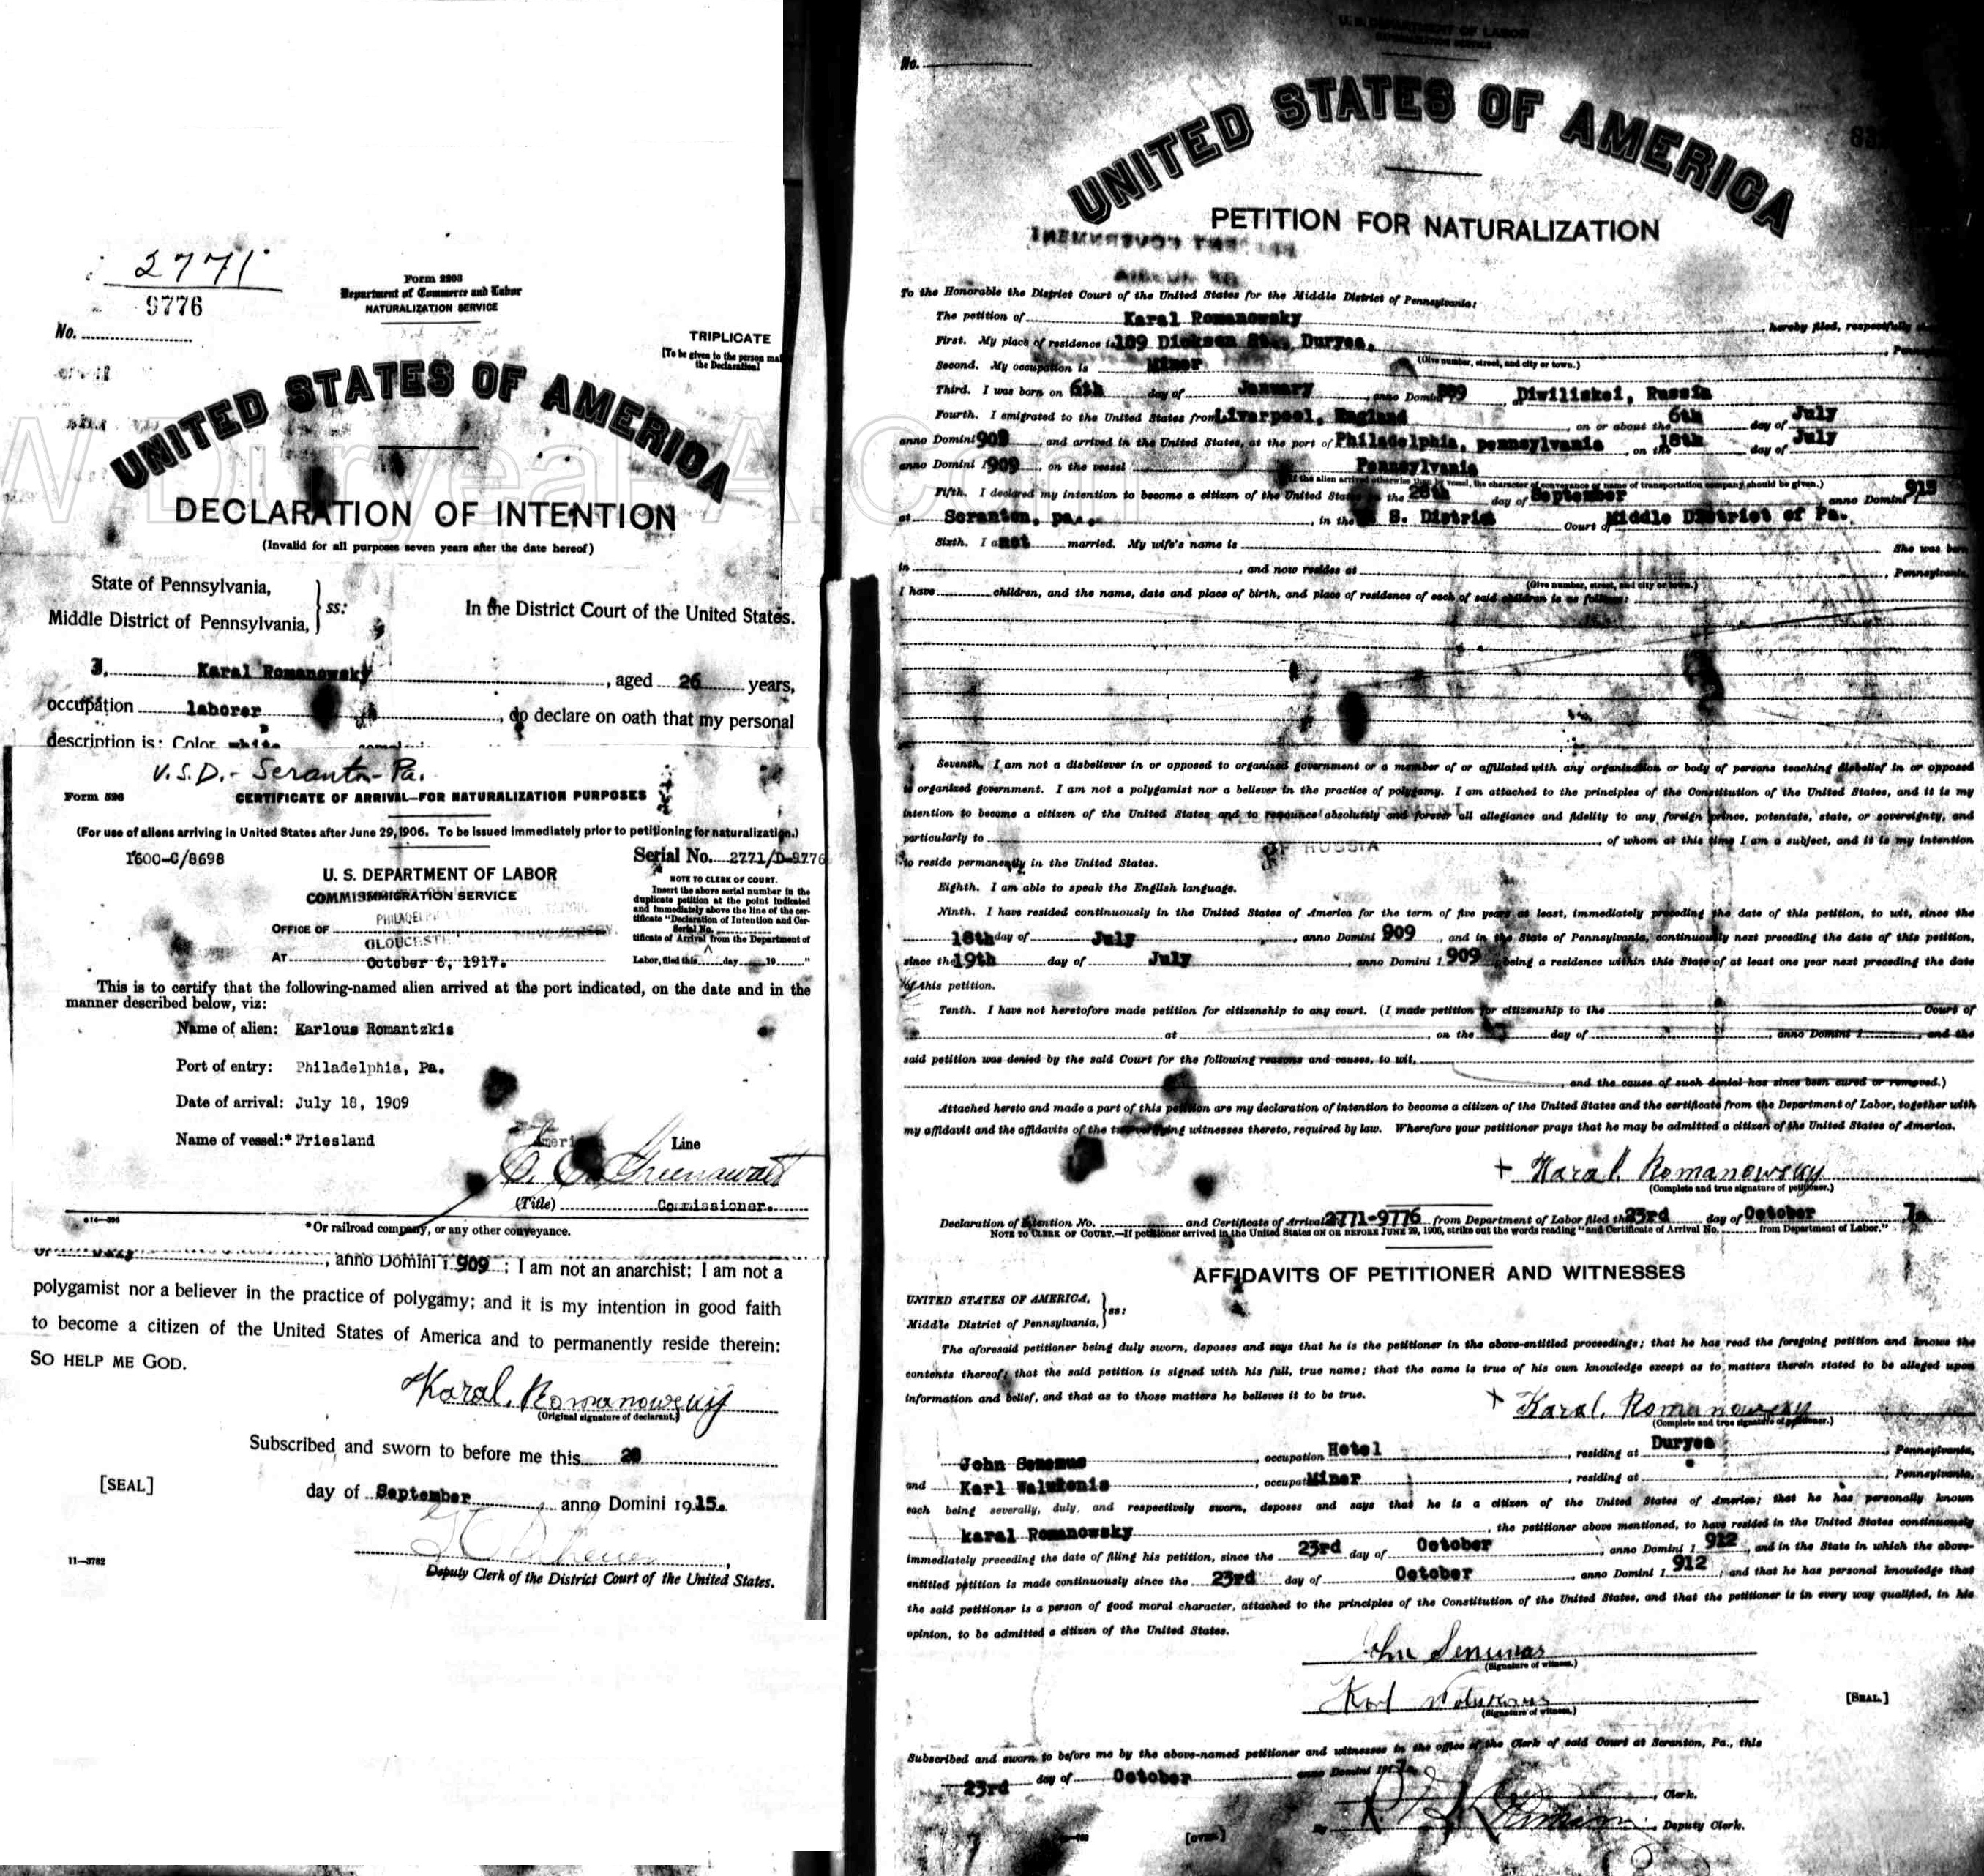 2771
9776
No.
Form 2203
Department of Commerce and Labor
NATURALIZATION SERVICE
TRIPLICATE
[To be given to the person
the Declaration]
UNITED STATES OF AMERICA
DECLARATION OF INTENTION
(Invalid for all purposes seven years after the date hereof)
State of Pennsylvania,
Middle District of Pennsylvania,
ss:
In the District Court of the United States.
I, Karal Romanowsky, aged 26 years,
occupation laborer, do declare on oath that my personal
description is: Color white
U.S.D.- Scranton- Pa.
Form 526
CERTIFICATE OF ARRIVAL—FOR NATURALIZATION PURPOSES
(For use of aliens arriving in United States after June 29, 1906. To be issued immediately prior to petitioning for naturalization.)
1600-C/8698
Serial No. 2771/D-9776
U. S. DEPARTMENT OF LABOR
IMMIGRATION SERVICE
NOTE TO CLERK OF COURT.
Insert the above serial number in the
duplicate petition at the point indicated
and immediately above the line of the cer-
tificate "Declaration of Intention and Cer-
Serial No.
tificate of Arrival from the Department of
Labor, filed this day 19 "
OFFICE OF
AT
October 6, 1917.
This is to certify that the following-named alien arrived at the port indicated, on the date and in the
manner described below, viz:
Name of alien: Karlous Romantzkis
Port of entry: Philadelphia, Pa.
Date of arrival: July 18, 1909
Name of vessel:* Friesland
American Line
(Title) Commissioner.
*Or railroad company, or any other conveyance.
of July, anno Domini 1 909 ; I am not an anarchist; I am not a
polygamist nor a believer in the practice of polygamy; and it is my intention in good faith
to become a citizen of the United States of America and to permanently reside therein:
SO HELP ME GOD.
Karal. Romanowsky
(Original signature of declarant.)
Subscribed and sworn to before me this 28
[SEAL]
day of September, anno Domini 1915.
11—3782
Deputy Clerk of the District Court of the United States.
U. S. DEPARTMENT OF LABOR
NATURALIZATION SERVICE
No.
UNITED STATES OF AMERICA
PETITION FOR NATURALIZATION
To the Honorable the District Court of the United States for the Middle District of Pennsylvania:
The petition of Karal Romanowsky, hereby filed, respectfully
First. My place of residence is 109 Dickson St., Duryea,
(Give number, street, and city or town.)
Second. My occupation is Miner
Third. I was born on 6th day of January, anno Domini Diwiliskei, Russia
Fourth. I emigrated to the United States from Liverpool, England, on or about the 6th day of July
anno Domini 909, and arrived in the United States, at the port of Philadelphia, pennsylvania, on the 18th day of July
anno Domini 1909, on the vessel Pennsylvania
(If the alien arrived otherwise than by vessel, the character of conveyance or name of transportation company should be given.)
Fifth. I declared my intention to become a citizen of the United States on the 28th day of September anno Domini 1915
at Scranton, pa., in the U. S. District Court of Middle District of Pa.
Sixth. I am not married. My wife's name is She was born
in, and now resides at, Pennsylvania.
(Give number, street, and city or town.)
I have children, and the name, date and place of birth, and place of residence of each of said children is as follows:
Seventh. I am not a disbeliever in or opposed to organized government or a member of or affiliated with any organization or body of persons teaching disbelief in or opposed
to organized government. I am not a polygamist nor a believer in the practice of polygamy. I am attached to the principles of the Constitution of the United States, and it is my
intention to become a citizen of the United States and to renounce absolutely and forever all allegiance and fidelity to any foreign prince, potentate, state, or sovereignty, and
particularly to OF RUSSIA, of whom at this time I am a subject, and it is my intention
to reside permanently in the United States.
Eighth. I am able to speak the English language.
Ninth. I have resided continuously in the United States of America for the term of five years at least, immediately preceding the date of this petition, to wit, since the
18th day of July, anno Domini 909, and in the State of Pennsylvania, continuously next preceding the date of this petition,
since the 19th day of July, anno Domini 1 909, being a residence within this State of at least one year next preceding the date
of this petition.
Tenth. I have not heretofore made petition for citizenship to any court. (I made petition for citizenship to the Court of
at, on the day of, anno Domini 1, and the
said petition was denied by the said Court for the following reasons and causes, to wit,
, and the cause of such denial has since been cured or removed.)
Attached hereto and made a part of this petition are my declaration of intention to become a citizen of the United States and the certificate from the Department of Labor, together with
my affidavit and the affidavits of the two verifying witnesses thereto, required by law. Wherefore your petitioner prays that he may be admitted a citizen of the United States of America.
+ Karal. Romanowsky
(Complete and true signature of petitioner.)
Declaration of Intention No. and Certificate of Arrival 2771-9776 from Department of Labor filed this 23rd day of October
NOTE TO CLERK OF COURT.—If petitioner arrived in the United States ON OR BEFORE JUNE 29, 1906, strike out the words reading "and Certificate of Arrival No. from Department of Labor."
AFFIDAVITS OF PETITIONER AND WITNESSES
UNITED STATES OF AMERICA,
Middle District of Pennsylvania,
ss:
The aforesaid petitioner being duly sworn, deposes and says that he is the petitioner in the above-entitled proceedings; that he has read the foregoing petition and knows the
contents thereof; that the said petition is signed with his full, true name; that the same is true of his own knowledge except as to matters therein stated to be alleged upon
information and belief, and that as to those matters he believes it to be true.
+ Karal. Romanowsky
(Complete and true signature of petitioner.)
John Senenus, occupation Hotel, residing at Duryea, Pennsylvania,
and Karl Walukonis, occupation Miner, residing at, Pennsylvania,
each being severally, duly, and respectively sworn, deposes and says that he is a citizen of the United States of America; that he has personally known
karal Romanowsky, the petitioner above mentioned, to have resided in the United States continuously
immediately preceding the date of filing his petition, since the 23rd day of October, anno Domini 1 912, and in the State in which the above-
entitled petition is made continuously since the 23rd day of October, anno Domini 1 912, and that he has personal knowledge that
the said petitioner is a person of good moral character, attached to the principles of the Constitution of the United States, and that the petitioner is in every way qualified, in his
opinion, to be admitted a citizen of the United States.
(Signature of witness.)
(Signature of witness.)
[SEAL.]
Subscribed and sworn to before me by the above-named petitioner and witnesses in the office of the Clerk of said Court at Scranton, Pa., this
23rd day of October anno Domini 1917
, Clerk.
By, Deputy Clerk.
[OVER.]